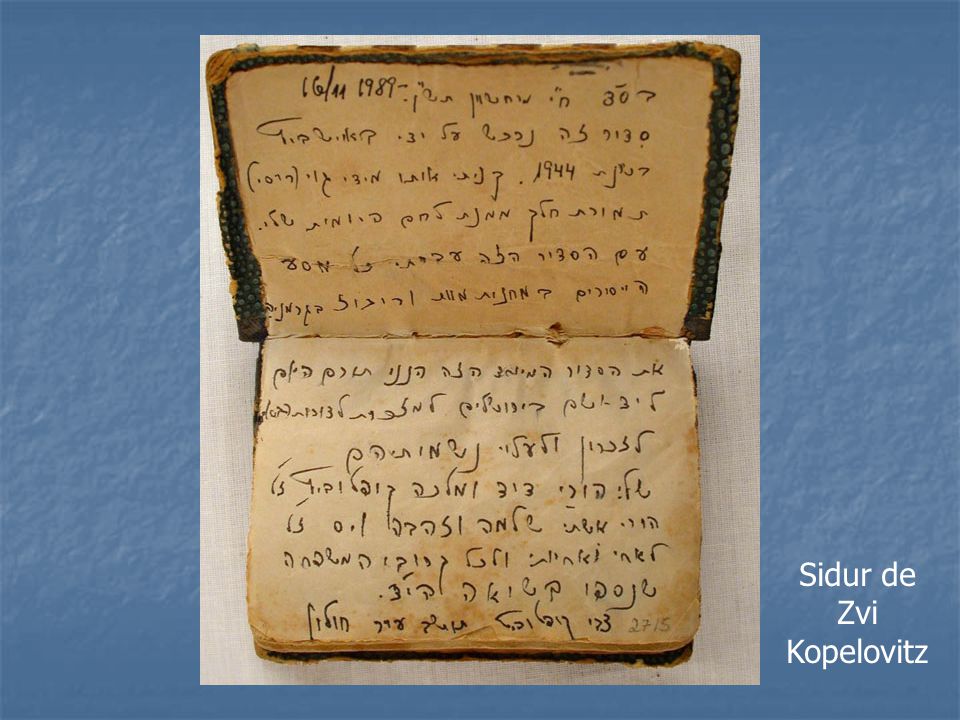 16/11 1989 - ב"ה יח' מרחשון תש"ן.
סדור זה נרכש על ידי באוישביץ
בשנת 1944. קניתי אותו מידי גוי (רוסי)
תמורת חלק ממנת לחם היומית שלי.
עם הסדור הזה עברתי כל מסע
היסורים במחנות מוות וריכוז בגרמניה
את הסדור המיוחד הזה הנני תורם היום
ליד-ושם בירושלים למזכרת לדורות
לזכרון ולעלוי נשמותיהם
של: הורי דוד ומלכה קופלוביץ ז"ל
הורי אשתי שלמה וזהבה ז"ל
לאחי ואחיותי ולכל קרובי המשפחה
שנספו בשואה הי"ד.
צבי קופלוביץ חולון 2715
Sidur de
Zvi
Kopelovitz